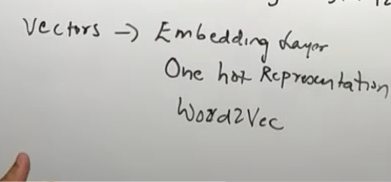 Vectors -> Embedding Layer
One hot Representation
Word2Vec